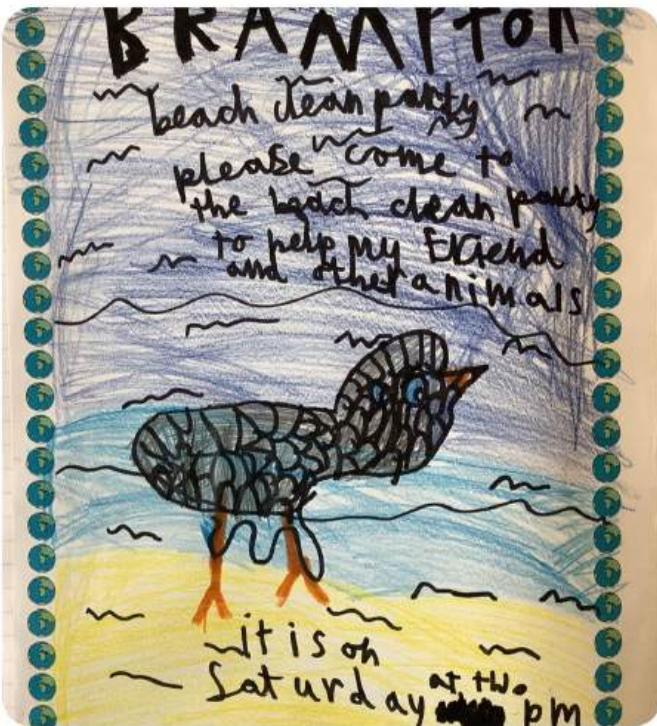 BRAMPTON
beach clean party
please come to
the beach clean party
to help my Friend
and other animals
it is on
Saturday at two pm